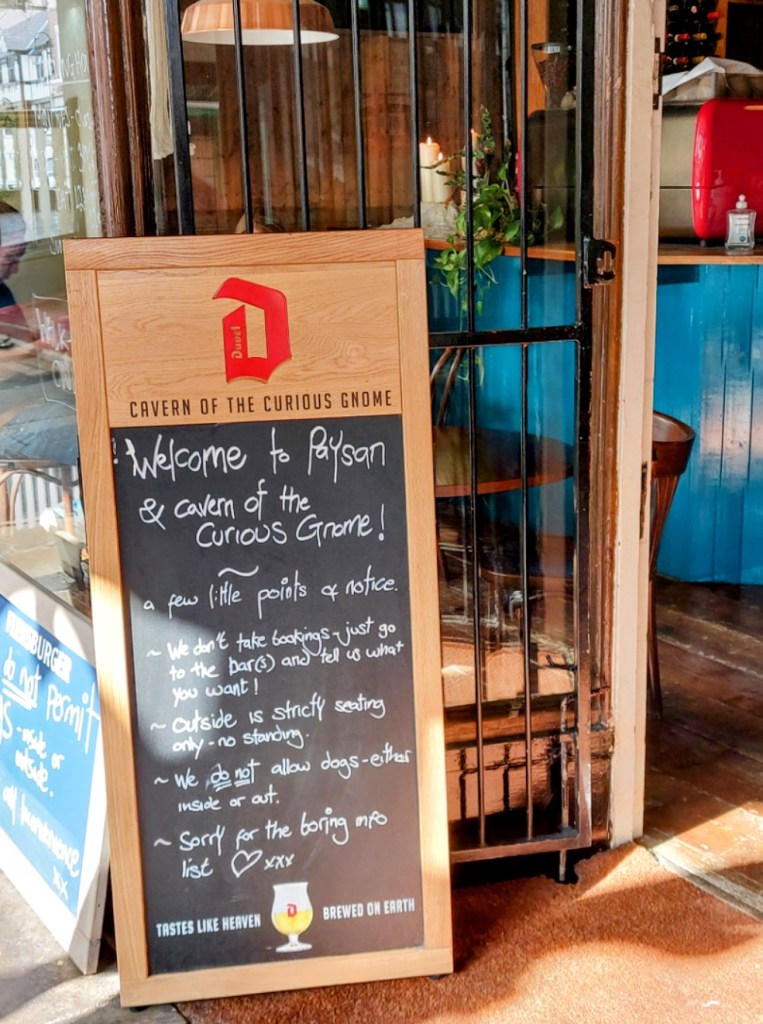 Duvel
CAVERN OF THE CURIOUS GNOME
Welcome to Paysan
& cavern of the
Curious Gnome!
~
a few little points of notice.
~ We don't take bookings - just go
to the bar(s) and tell us what
you want!
~ Outside is strictly seating
only - no standing.
~ We do not allow dogs - either
inside or out.
~ Sorry for the boring info
list ♡ xxx
TASTES LIKE HEAVEN
BREWED ON EARTH
do not permit
- inside or
outside.
inconvenience
xx